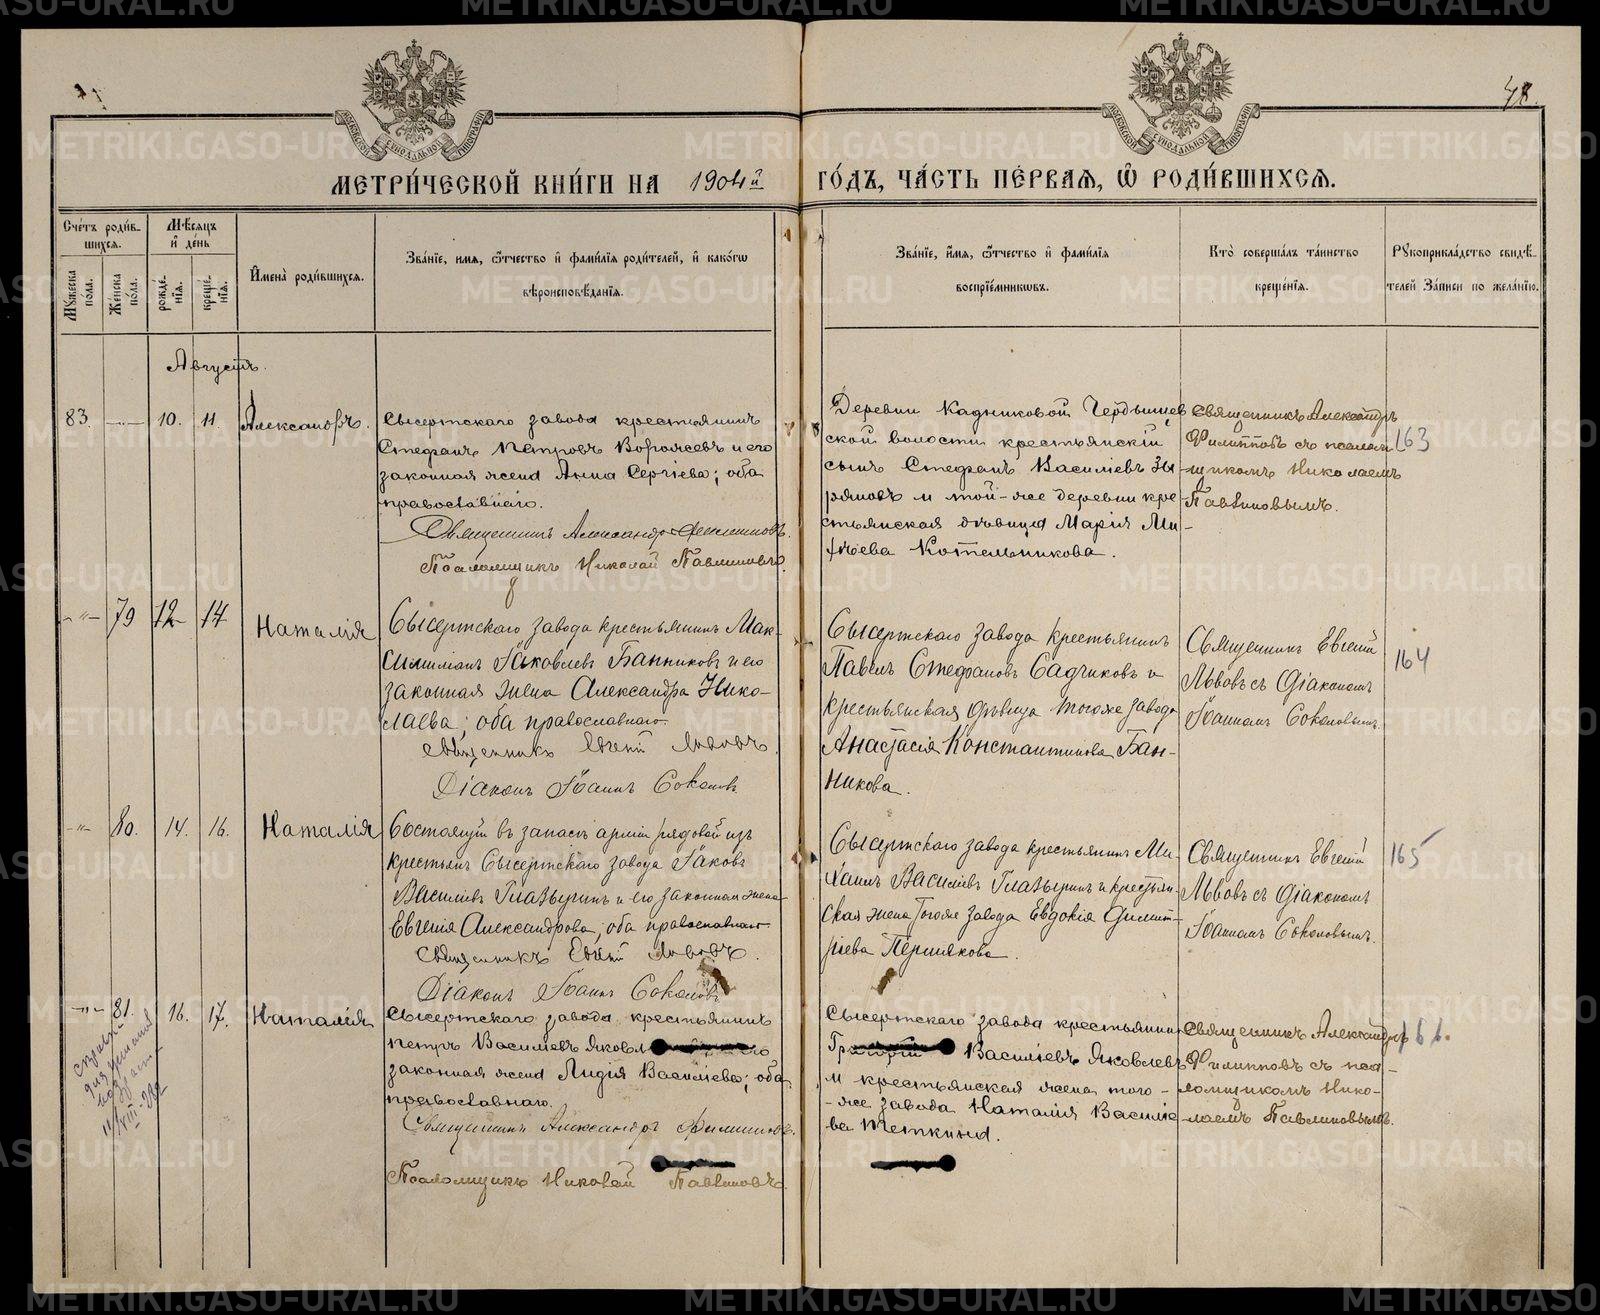 48.
МЕТРИ́ЧЕСКОЙ КНИ́ГИ НА 1904й ГО́ДЪ, ЧА́СТЬ ПЕ́РВАЯ, Ѽ РОДИ́ВШИХСЯ.
Сче́тъ роди́вшихся.
Му́жеска пола.
Же́нска пола.
Мѣ́сяцъ и де́нь
рожде́нїя.
креще́нїя.
Имена̀ роди́вшихся.
Зва́нїе, имя, ѻ҆́тчество и фами́лїя роди́телей, и како́гѡ
вѣроисповѣ́данїя.
Зва́нїе, и́мя, ѻ҆́тчество и фами́лїя
воспрїе́мникѡвъ.
Кто̀ соверша́лъ та́инство
креще́нїя.
Рꙋкоприкла́дство свидѣ́-
телей за́писи по жела́нїю.
Августъ.
83. —„— 10. 11. Александръ.
Сысертскаго завода крестьянинъ
Стефанъ Петровъ Ворожевъ и его
законная жена Анна Сергіева; оба
православнаго.
Священникъ Александръ Филипповъ.
Псаломщикъ Николай Павлиновъ.
Деревни Кадниковой
ской волости крестьянскій
сынъ Стефанъ Василіевъ Зы-
ряновъ и той-же деревни кре-
стьянская дѣвица Марія Ми-
хѣева Котельникова.
Священникъ Александръ
Филипповъ съ псалом-
щикомъ Николаемъ
Павлиновымъ.
163
—„— 79 12 14 Наталія
Сысертскаго завода крестьянинъ Мак-
симиліанъ Іаковлевъ Банниковъ и его
законная жена Александра Нико-
лаева; оба православнаго
Священникъ Евгеній Львовъ.
Діаконъ Іоаннъ Соколовъ
Сысертскаго завода крестьянинъ
Павелъ Стефановъ Садчиковъ и
крестьянская дѣвица тогоже завода
Анастасія Константинова Бан-
никова.
Священникъ Евгеній
Львовъ съ діакономъ
Іоанномъ Соколовымъ.
164
—„— 80. 14. 16. Наталія
Состоящій въ запасѣ арміи рядовой изъ
крестьянъ Сысертскаго завода Іаковъ
Василіевъ Глазыринъ и его законная жена
Евгенія Александрова; оба православнаго
Священникъ Евгеній Львовъ.
Діаконъ Іоаннъ Соколовъ
Сысертскаго завода крестьянинъ Ми-
хаилъ Василіевъ Глазыринъ и крестьян-
ская жена тогоже завода Евдокія Димит-
ріева Пермякова.
Священникъ Евгеній
Львовъ съ діакономъ
Іоанномъ Соколовымъ.
165
—„— 81. 16. 17. Наталія
Сысертскаго завода крестьянинъ
Петръ Василіевъ Яковл
законная жена Лидія Василіева; оба
православнаго.
Священникъ Александръ Филипповъ.
Псаломщикъ Николай Павлиновъ.
Сысертскаго завода крестьянинъ
Григорій Василіевъ Яковлевъ
и крестьянская жена того-
-же завода Наталія Василіе-
ва Теткина.
Священникъ Александръ
Филипповъ съ пса-
ломщикомъ Нико-
лаемъ Павлиновымъ.
166.
METRIKI.GASO-URAL.RU